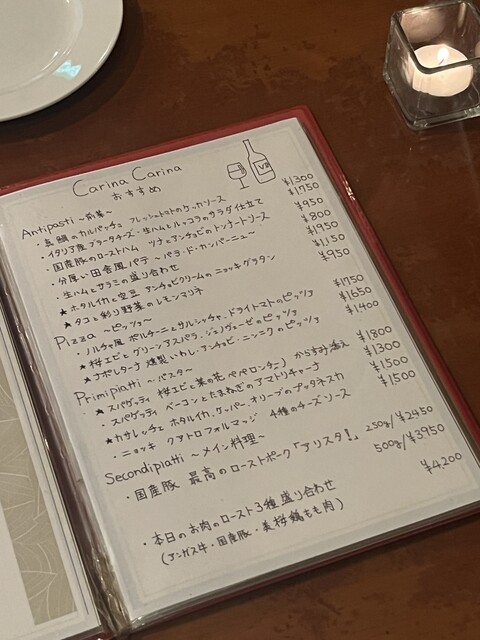 Carina Carina
おすすめ
Antipasti ～前菜～
・真鯛のカルパッチョ フレッシュトマトのケッカソース ¥1300
・イタリア産ブラータチーズ・生ハムとルッコラのサラダ仕立て ¥1750
・国産豚のローストハム ツナとアンチョビのトンナートソース ¥950
・分厚い田舎風パテ ～パテ・ド・カンパーニュ～ ¥800
・生ハムとサラミの盛り合わせ ¥1950
★ホタルイカと空豆 アンチョビクリームのニョッキグラタン ¥1150
★タコと彩り野菜のレモンマリネ ¥950
Pizza ～ピッツァ～
・ノルチャ風 ポルチーニとサルシッチャ、ドライトマトのピッツァ ¥1750
★桜エビとグリーンアスパラ、ジェノヴェーゼのピッツァ ¥1650
★ナポレターナ 燻製いわし、アンチョビ・ニンニクのピッツァ ¥1400
Primipiatti ～パスタ～
★スパゲッティ 桜エビと菜の花 ペペロンチーノ からすみ添え ¥1800
・スパゲッティ ベーコンとたまねぎのアマトリチャーナ ¥1300
★カサレッチェ ホタルイカ、ケッパー、オリーブのプッタネスカ ¥1500
・ニョッキ クアトロフォルマッジ 4種のチーズソース ¥1500
Secondipiatti ～メイン料理～
・国産豚 最高のローストポーク「アリスタ!」 250g/¥2450
500g/¥3950
・本日のお肉のロースト3種盛り合わせ ¥4200
(アンガス牛・国産豚・美桜鶏もも肉)